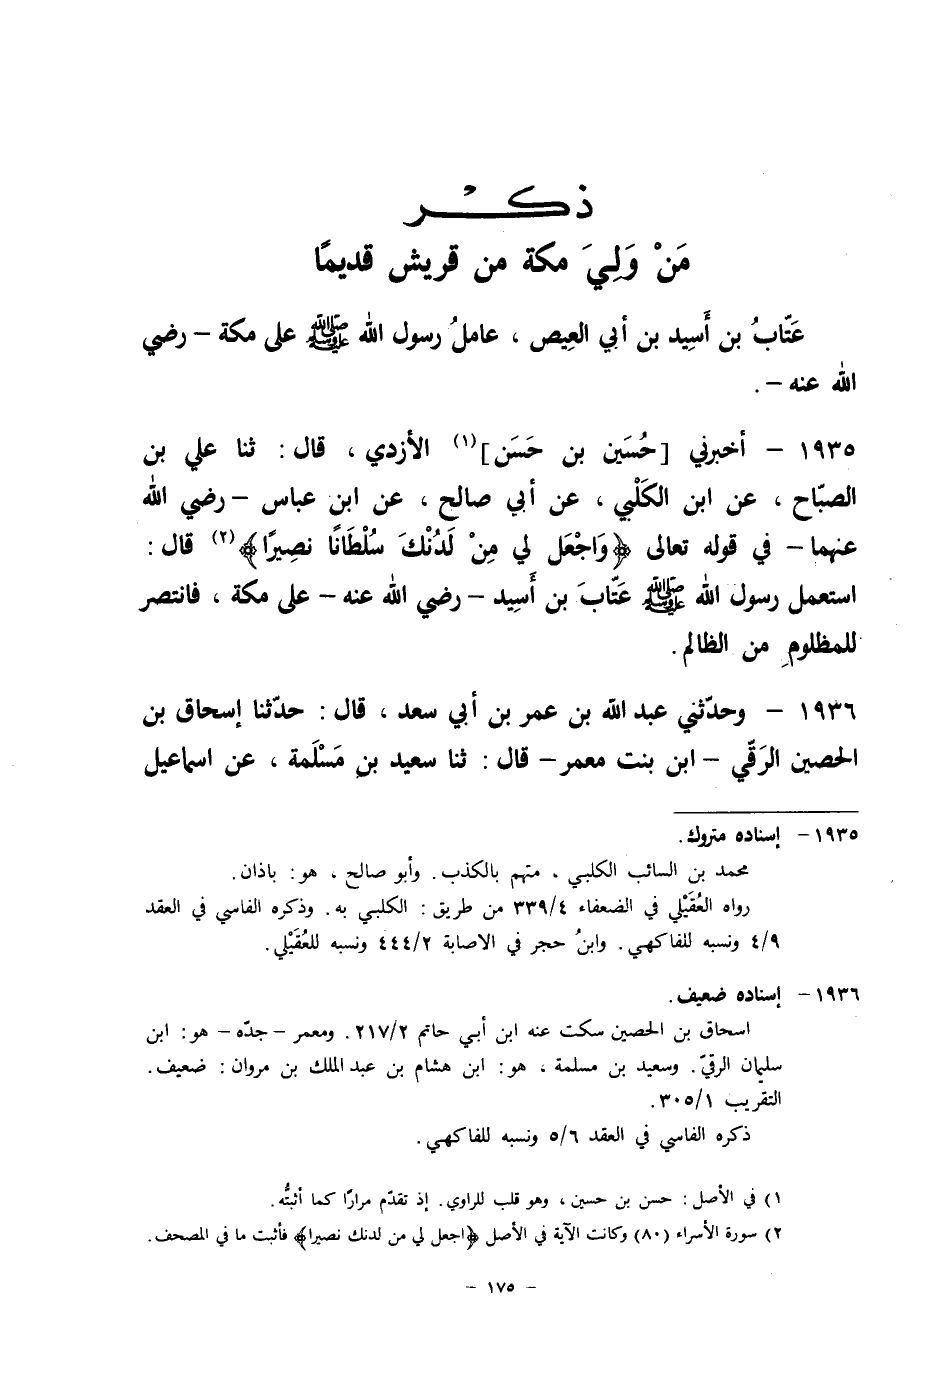 ذكر
مَنْ وَلِيَ مكة من قريش قديمًا
عَتّابُ بن أَسِيد بن أبي العِيص ، عاملُ رسول الله ﷺ على مكة – رضي
الله عنه – .
١٩٣٥ – أخبرني [حُسَين بن حَسَن](١) الأزدي ، قال : ثنا علي بن
الصبّاح ، عن ابن الكَلْبي ، عن أبي صالح ، عن ابن عباس – رضي الله
عنهما – في قوله تعالى ﴿وَاجْعَل لي مِنْ لَدُنْكَ سُلْطَانًا نصِيرًا﴾(٢) قال :
استعمل رسول الله ﷺ عَتّابَ بن أَسِيد – رضي الله عنه – على مكة ، فانتصر
للمظلومِ من الظالم .
١٩٣٦ – وحدّثني عبد الله بن عمر بن أبي سعد ، قال : حدّثنا إسحاق بن
الحصين الرَقّي – ابن بنت معمر – قال : ثنا سعيد بنِ مَسْلَمة ، عن اسماعيل
١٩٣٥ – إسناده متروك .
محمد بن السائب الكلبي ، متهم بالكذب . وأبو صالح ، هو : باذان .
رواه العُقَيْلي في الضعفاء ٣٣٩/٤ من طريق : الكلبي به . وذكره الفاسي في العقد
٤/٩ ونسبه للفاكهي . وابنُ حجر في الاصابة ٤٤٤/٢ ونسبه للعُقَيْلي .
١٩٣٦ – إسناده ضعيف .
اسحاق بن الحصين سكت عنه ابن أبي حاتم ٢١٧/٢ . ومعمر – جدّه – هو : ابن
سليمان الرقيّ . وسعيد بن مسلمة ، هو : ابن هشام بن عبد الملك بن مروان : ضعيف .
التقريب ٣٠٥/١ .
ذكره الفاسي في العقد ٥/٦ ونسبه للفاكهي .
١) في الأصل : حسن بن حسين ، وهو قلب للراوي . إذ تقدّم مرارًا كما أثبتُّه .
٢) سورة الأسراء (٨٠) وكانت الآية في الأصل ﴿اجعل لي من لدنك نصيرا﴾ فأثبت ما في المصحف .
– ١٧٥ –